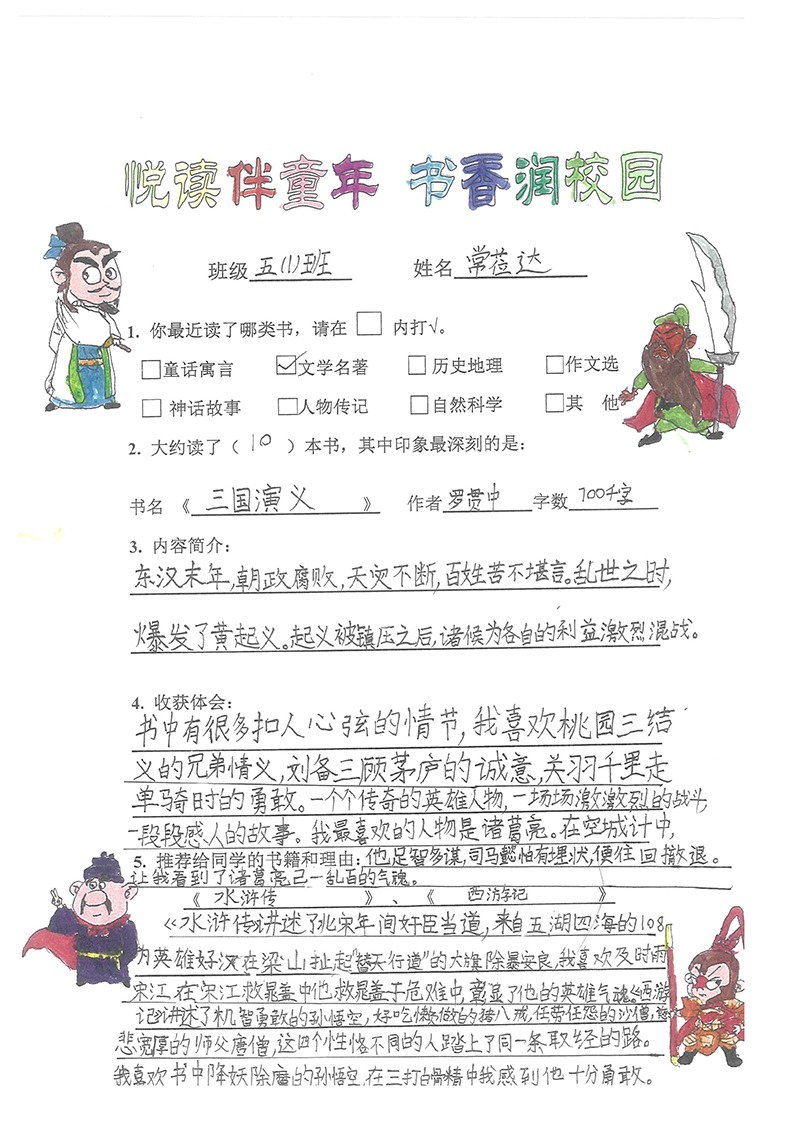 悦读伴童年 书香润校园
班级 五(1)班 姓名 常莅达
1. 你最近读了哪类书，请在 □ 内打√。
□童话寓言 ☑文学名著 □历史地理 □作文选
□神话故事 □人物传记 □自然科学 □其 他
2. 大约读了（ 10 ）本书，其中印象最深刻的是：
书名《 三国演义 》 作者 罗贯中 字数 700千字
3. 内容简介：
东汉末年，朝政腐败，天灾不断，百姓苦不堪言。乱世之时，
爆发了黄起义。起义被镇压之后，诸候为各自的利益激烈混战。
4. 收获体会：
书中有很多扣人心弦的情节，我喜欢桃园三结
义的兄弟情义，刘备三顾茅庐的诚意，关羽千里走
单骑时的勇敢。一个个传奇的英雄人物，一场场激激烈的战斗，
一段段感人的故事。我最喜欢的人物是诸葛亮。在空城计中，
5. 推荐给同学的书籍和理由：他足智多谋，司马懿怕有埋伏，便往回撤退。
让我看到了诸葛亮己一乱百的气魂。
《 水浒传 》、《 西游记 》
《水浒传讲述了北宋年间奸臣当道，来自五湖四海的108
为英雄好汉在梁山扯起"替天行道"的大旗除暴安良，我喜欢及时雨
宋江，在宋江救晁盖中他救晁盖于危难中，彰显了他的英雄气魂。《西游
记》讲述了机智勇敢的孙悟空，好吃懒做的猪八戒，任劳任怨的沙僧，慈
悲宽厚的师父唐僧，这四个性格不同的人踏上了同一条取经的路。
我喜欢书中降妖除魔的孙悟空，在三打白骨精中我感到他十分勇敢。